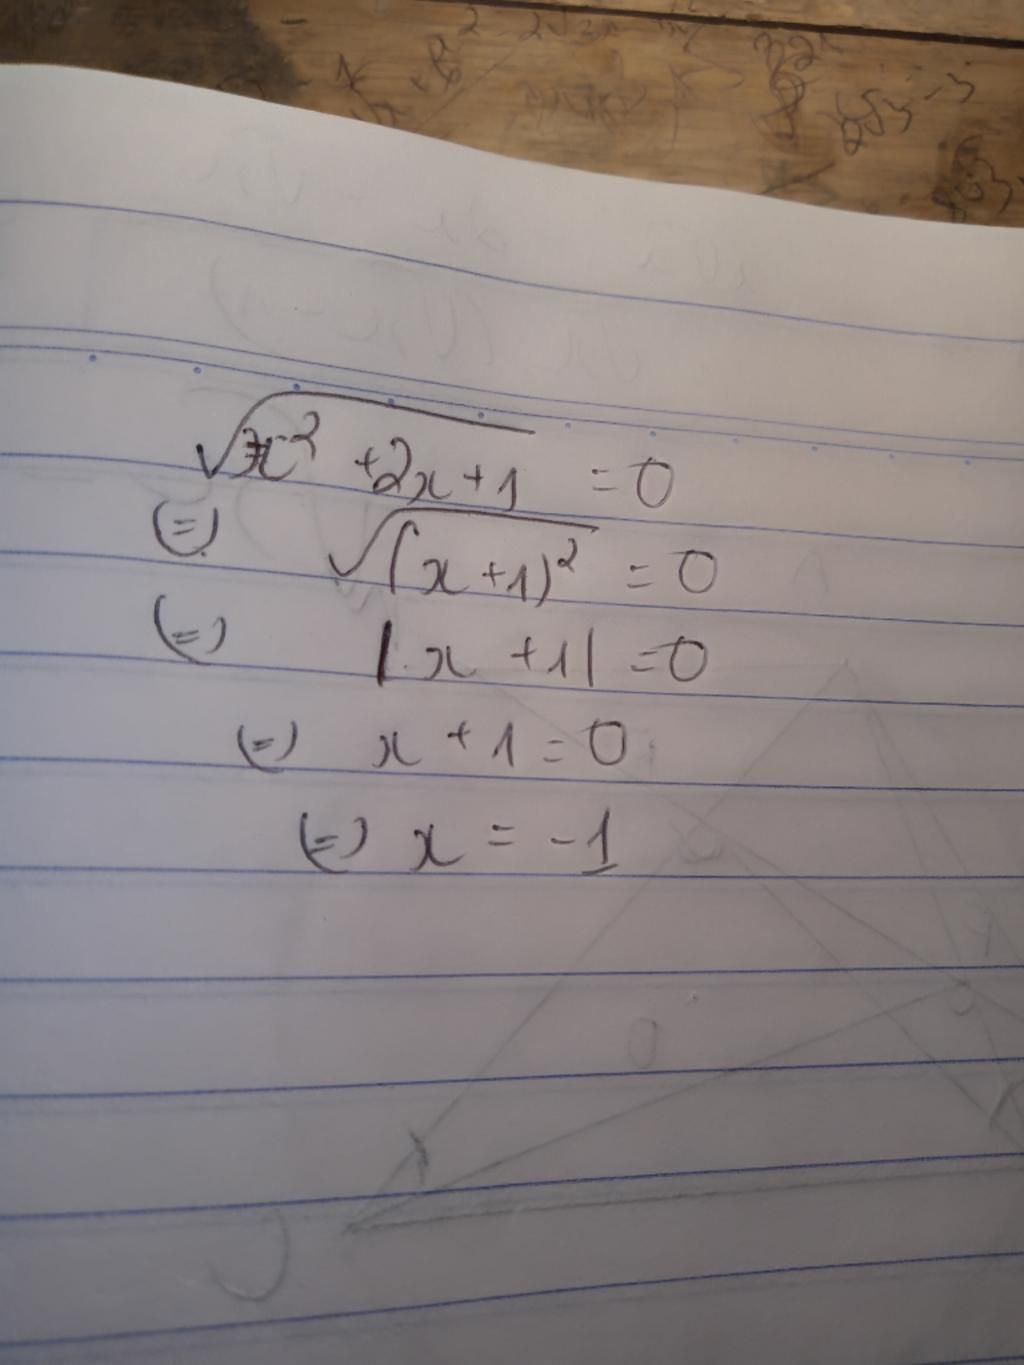 √(x² + 2x + 1) = 0
(=) √((x + 1)²) = 0
(=) |x + 1| = 0
(=) x + 1 = 0
(=) x = -1